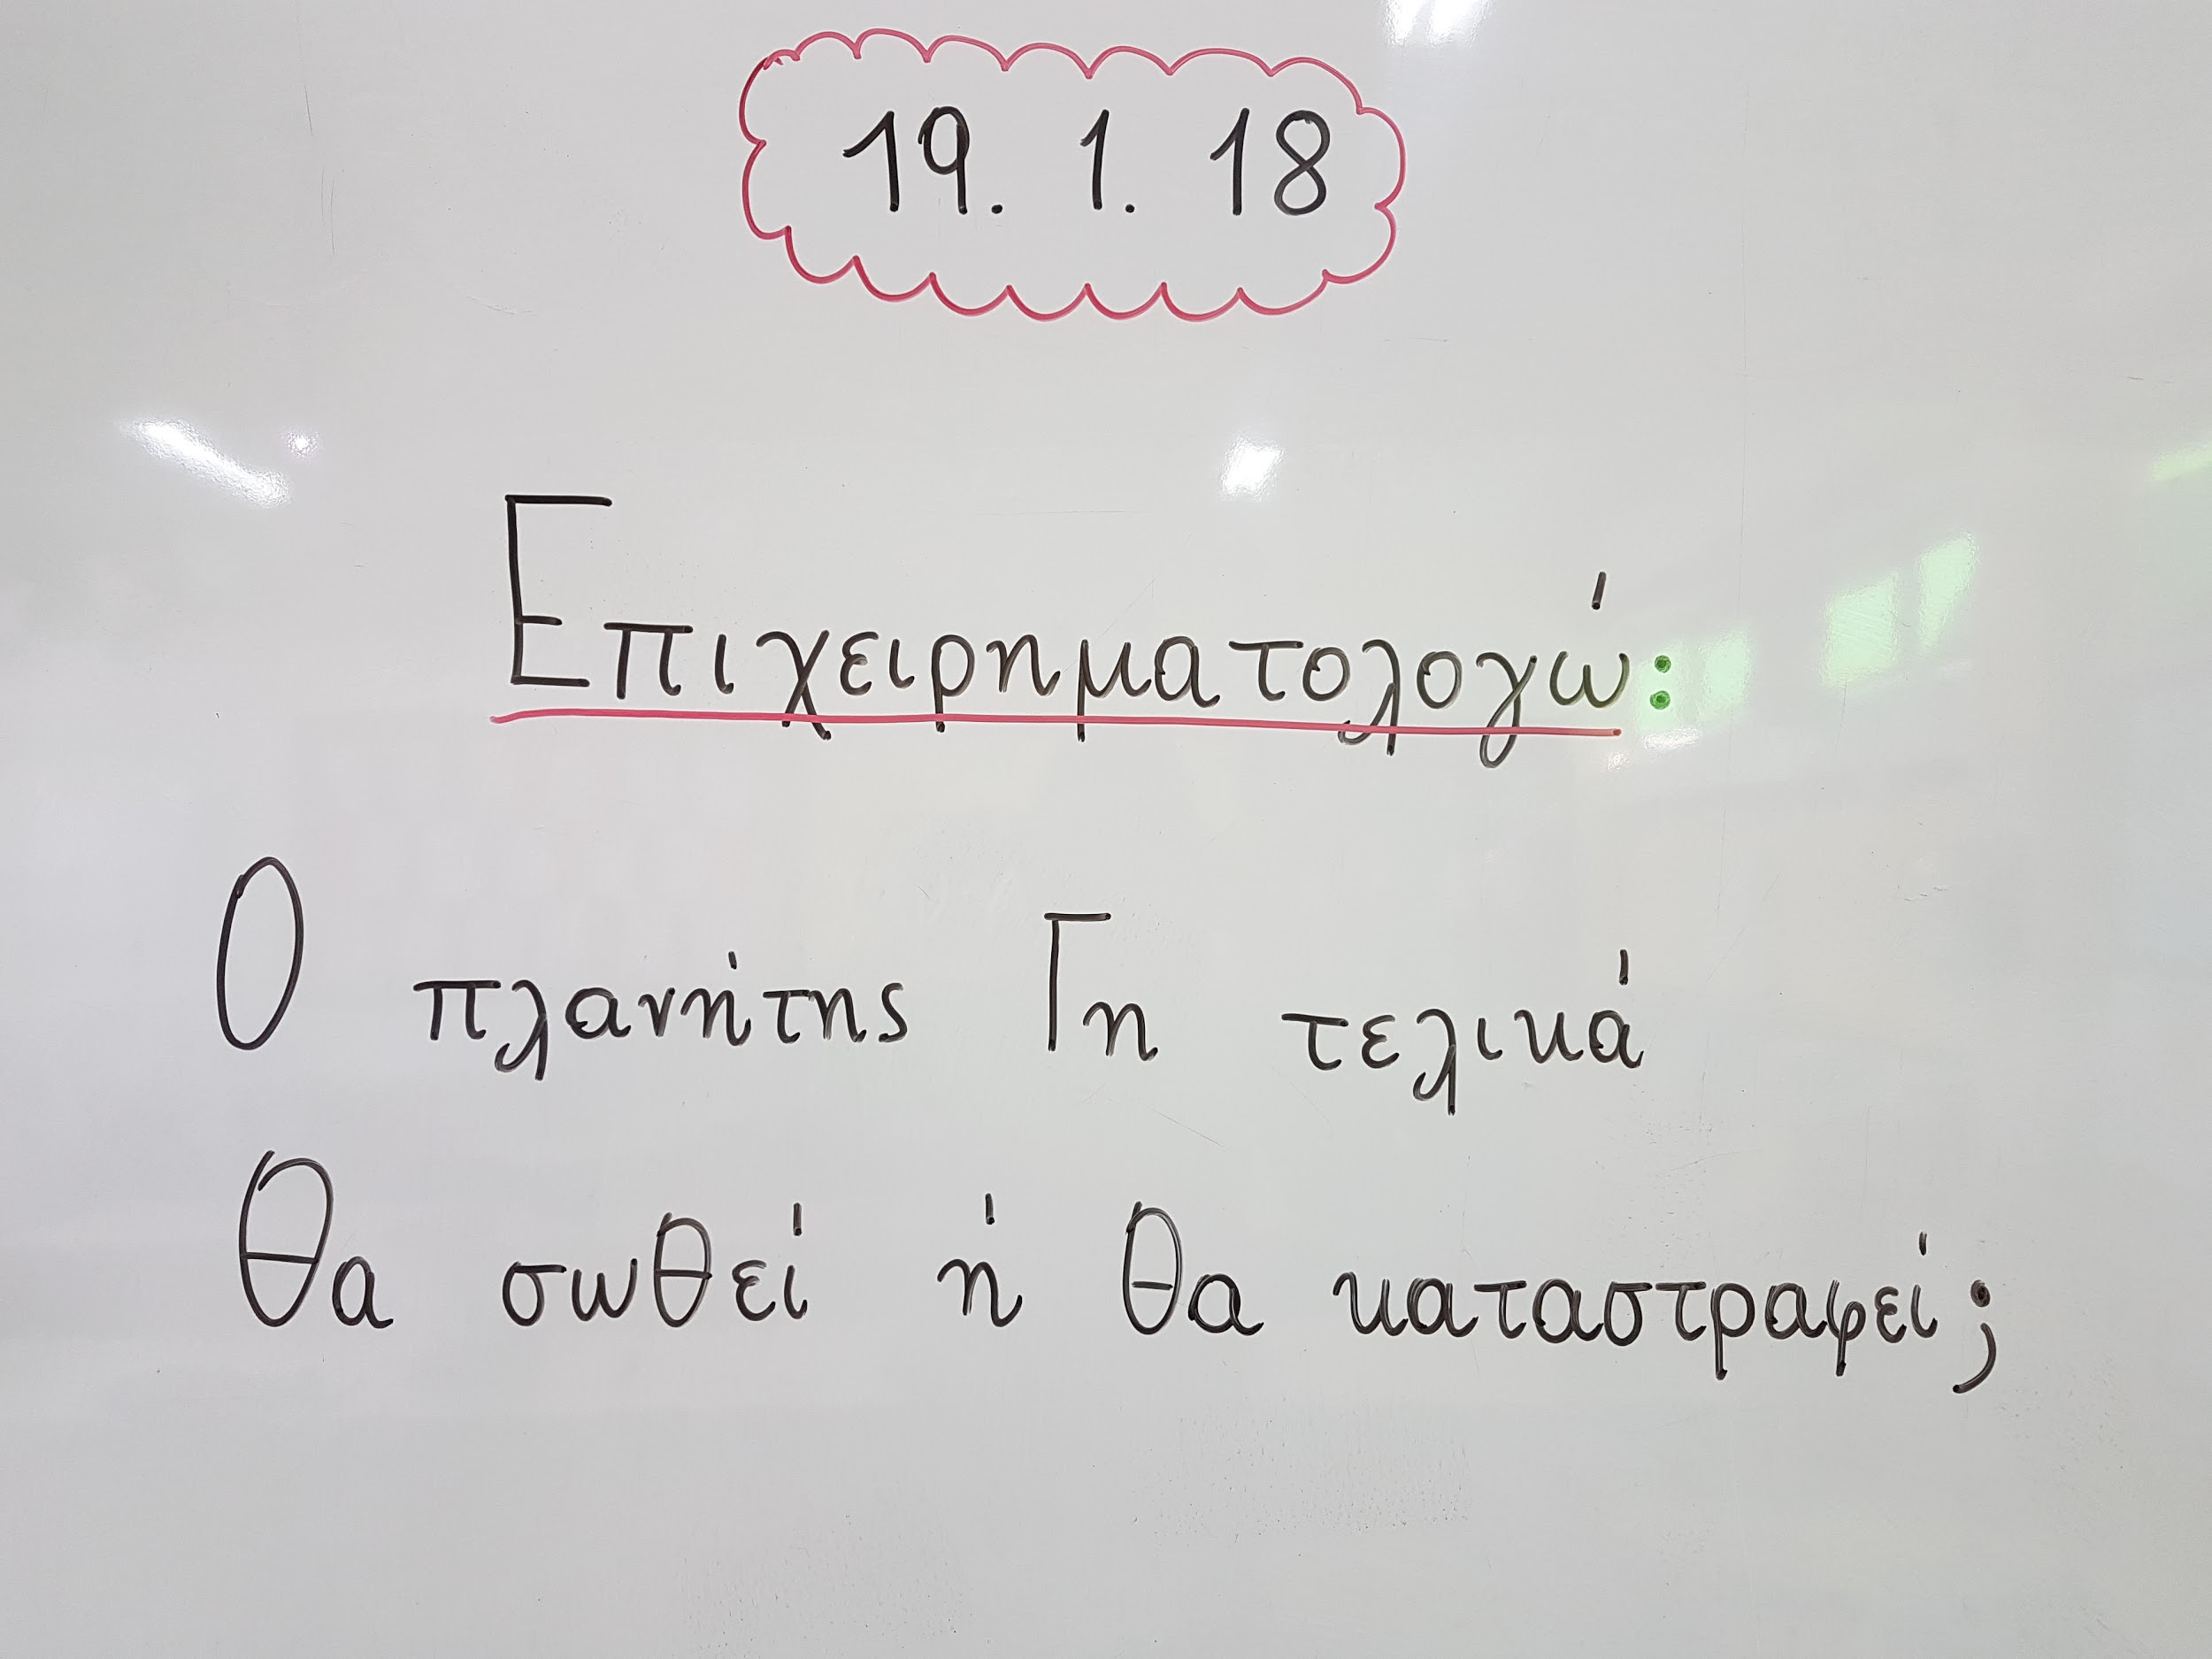 19. 1. 18
Επιχειρηματολογώ:
Ο πλανήτης Γη τελικά
θα σωθεί ή θα καταστραφεί;